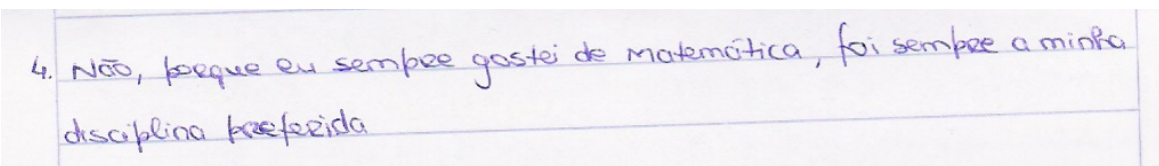 4. Não, porque eu sempre gostei de Matemática, foi sempre a minha
disciplina preferida